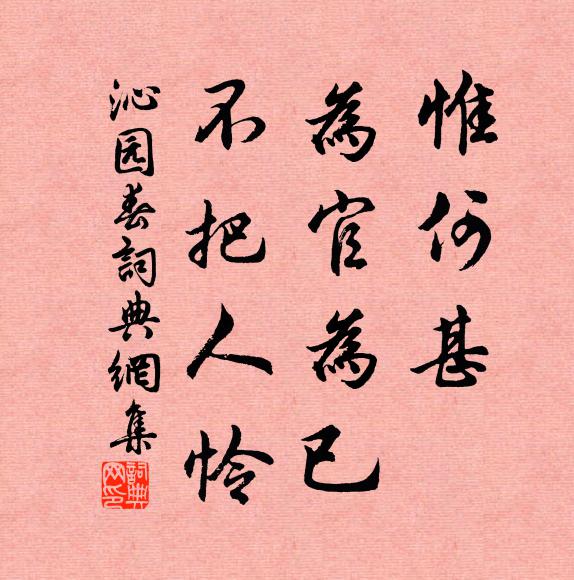 惟何甚
為官為已
不把人怜
沁园春詞典網集
詞典网印